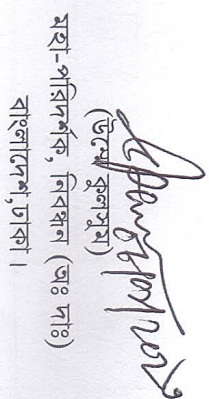 (উম্মে কুলসুম)
মহা-পরিদর্শক, নিবন্ধন (অঃ দাঃ)
বাংলাদেশ,ঢাকা।